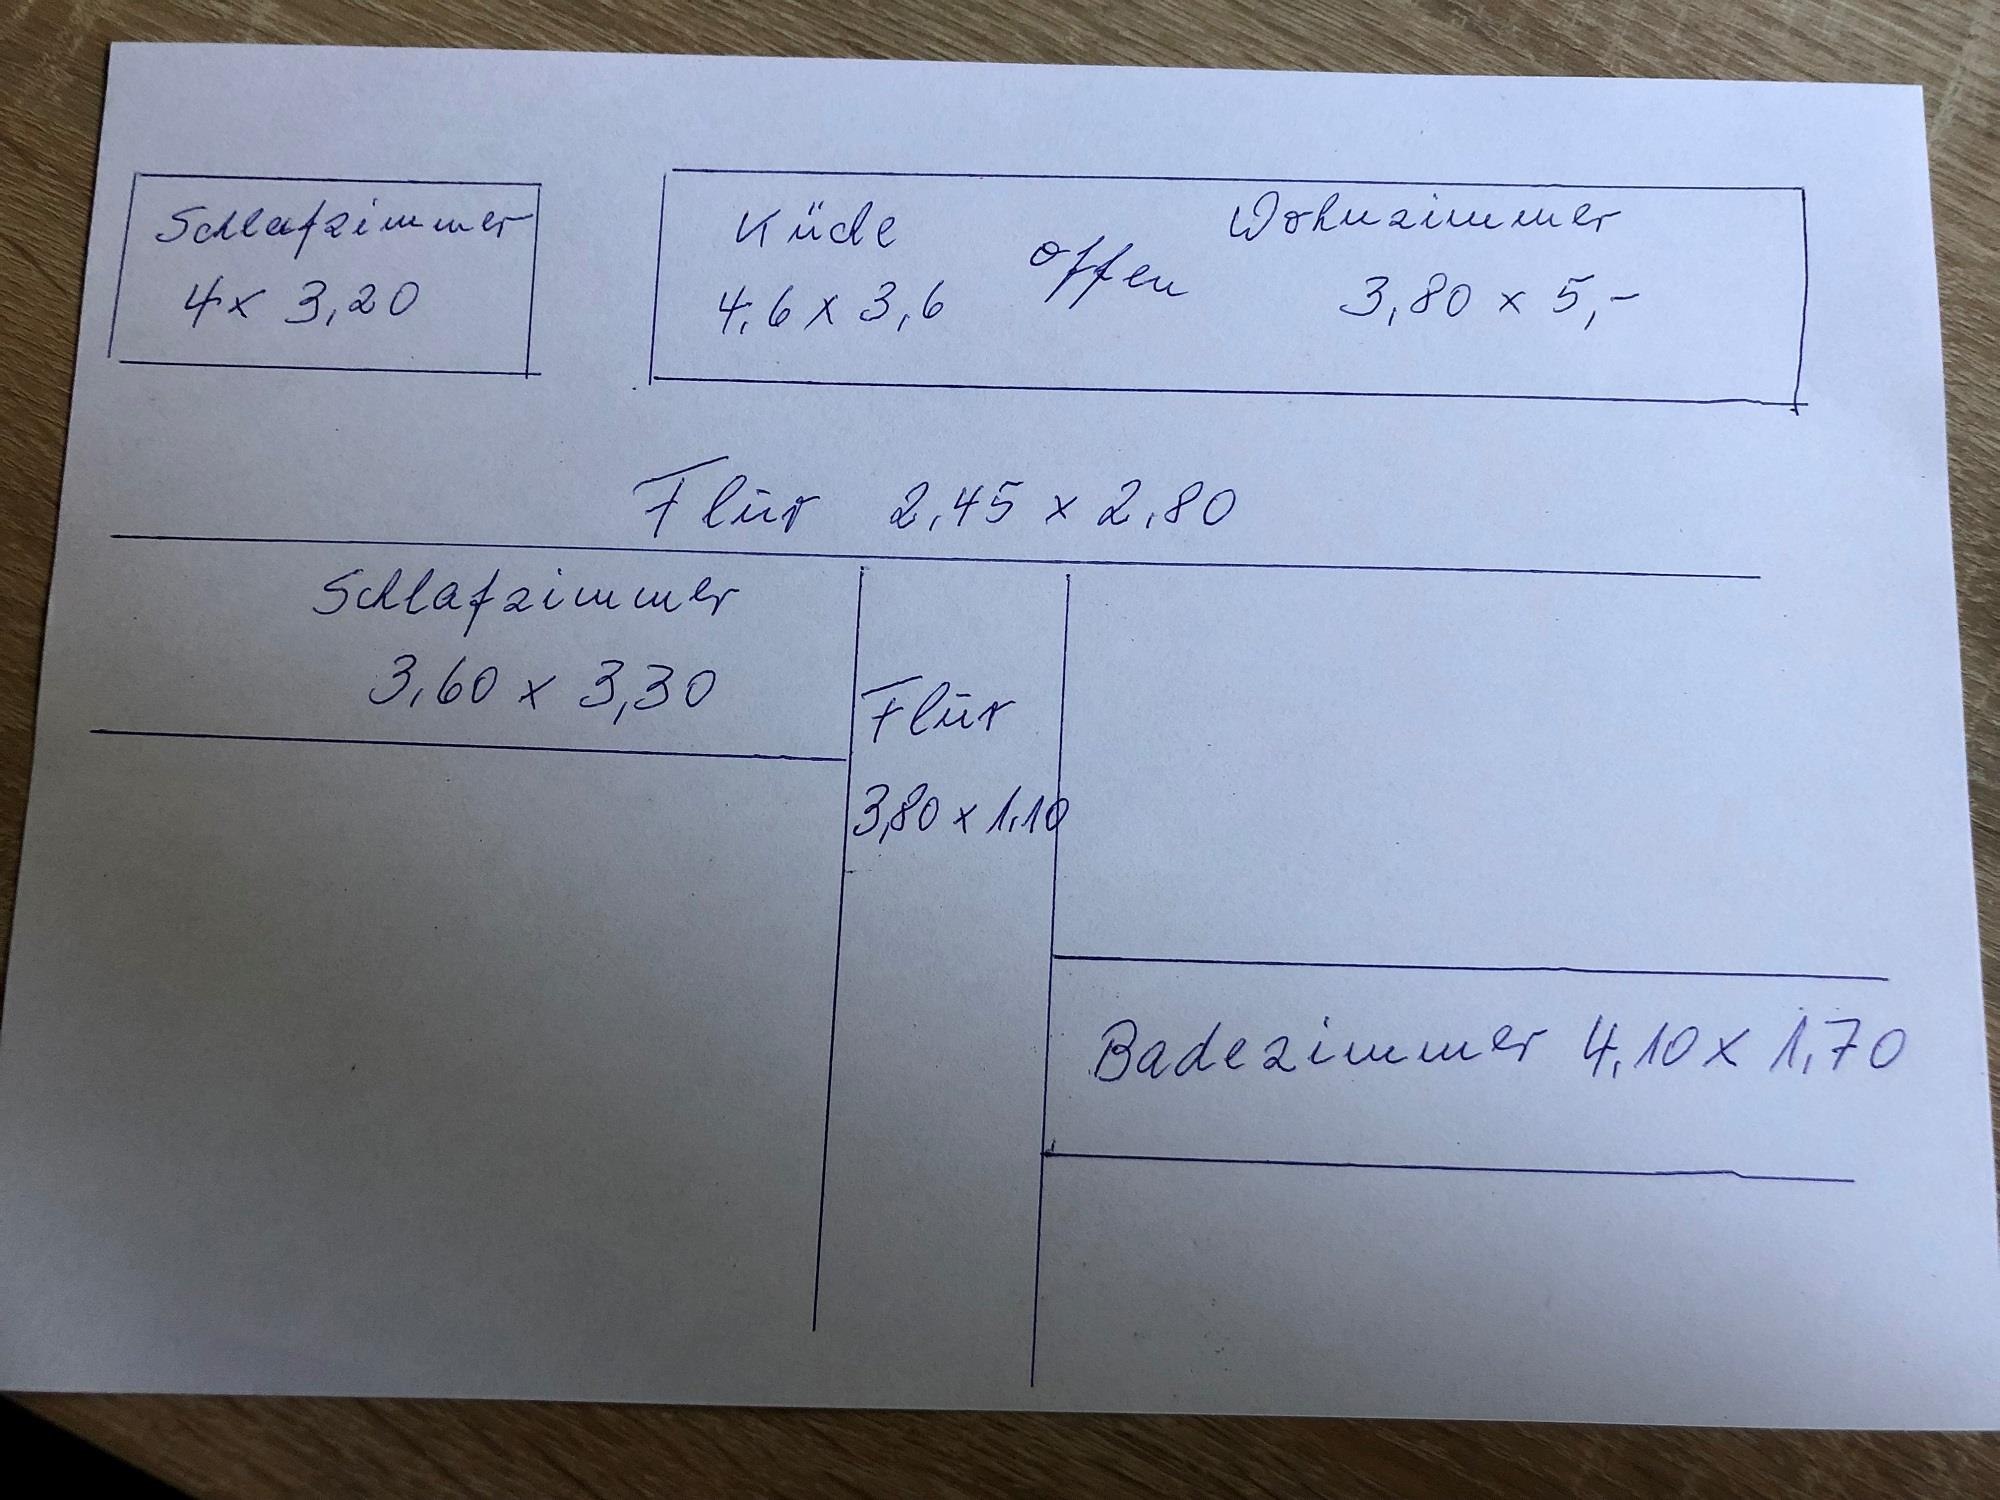 Schlafzimmer
4 x 3,20
Küche
4,6 x 3,6
offen
Wohnzimmer
3,80 x 5,-
Flur 2,45 x 2,80
Schlafzimmer
3,60 x 3,30
Flur
3,80 x 1,10
Badezimmer 4,10 x 1,70